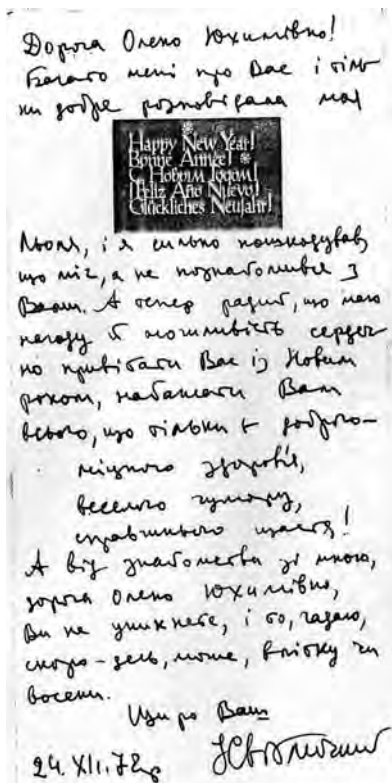 Дорога Олено Юхимівно!
Багато мені про Вас і тіль
ки добре розповідала моя
Happy New Year!
Bonne Année!
С Новым Годом!
¡Feliz Año Nuevo!
Glückliches Neujahr!
Льоля, і я сильно пошкодував,
що міг, а не познайомився з
Вами. А тепер радий, що маю
нагоду й можливість сердеч
но привітати Вас із Новим
роком, набажати Вам
всього, що тільки є доброго—
міцного здоров'я,
веселого гумору,
справжнього щастя!
А від знайомства зі мною,
дорога Олено Юхимівно,
Ви не уникнете, і то, гадаю,
скоро – десь, може, влітку чи
восени.
Щиро Ваш
24. XII. 72 р